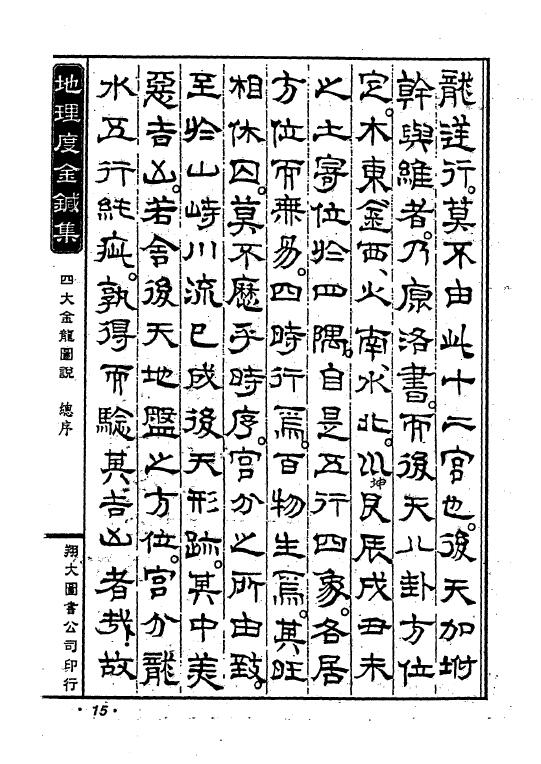 龍逆行。莫不由此十二宮也。後天加坿
幹與維者。乃原洛書。而後天八卦方位
定。木東金西、火南水北。巛坤艮辰戌丑未
之土寄位於四隅。自是五行四象。各居
方位而無易。四時行焉。百物生焉。其旺
相休囚。莫不歷乎時序。宮分之所由致。
至於山峙川流已成後天形跡。其中美
惡吉凶。若舍後天地盤之方位。宮分龍
水五行純疵。孰得而驗其吉凶者哉。故
地理度金鍼集
四大金龍圖說 總序
翔大圖書公司印行
·15·